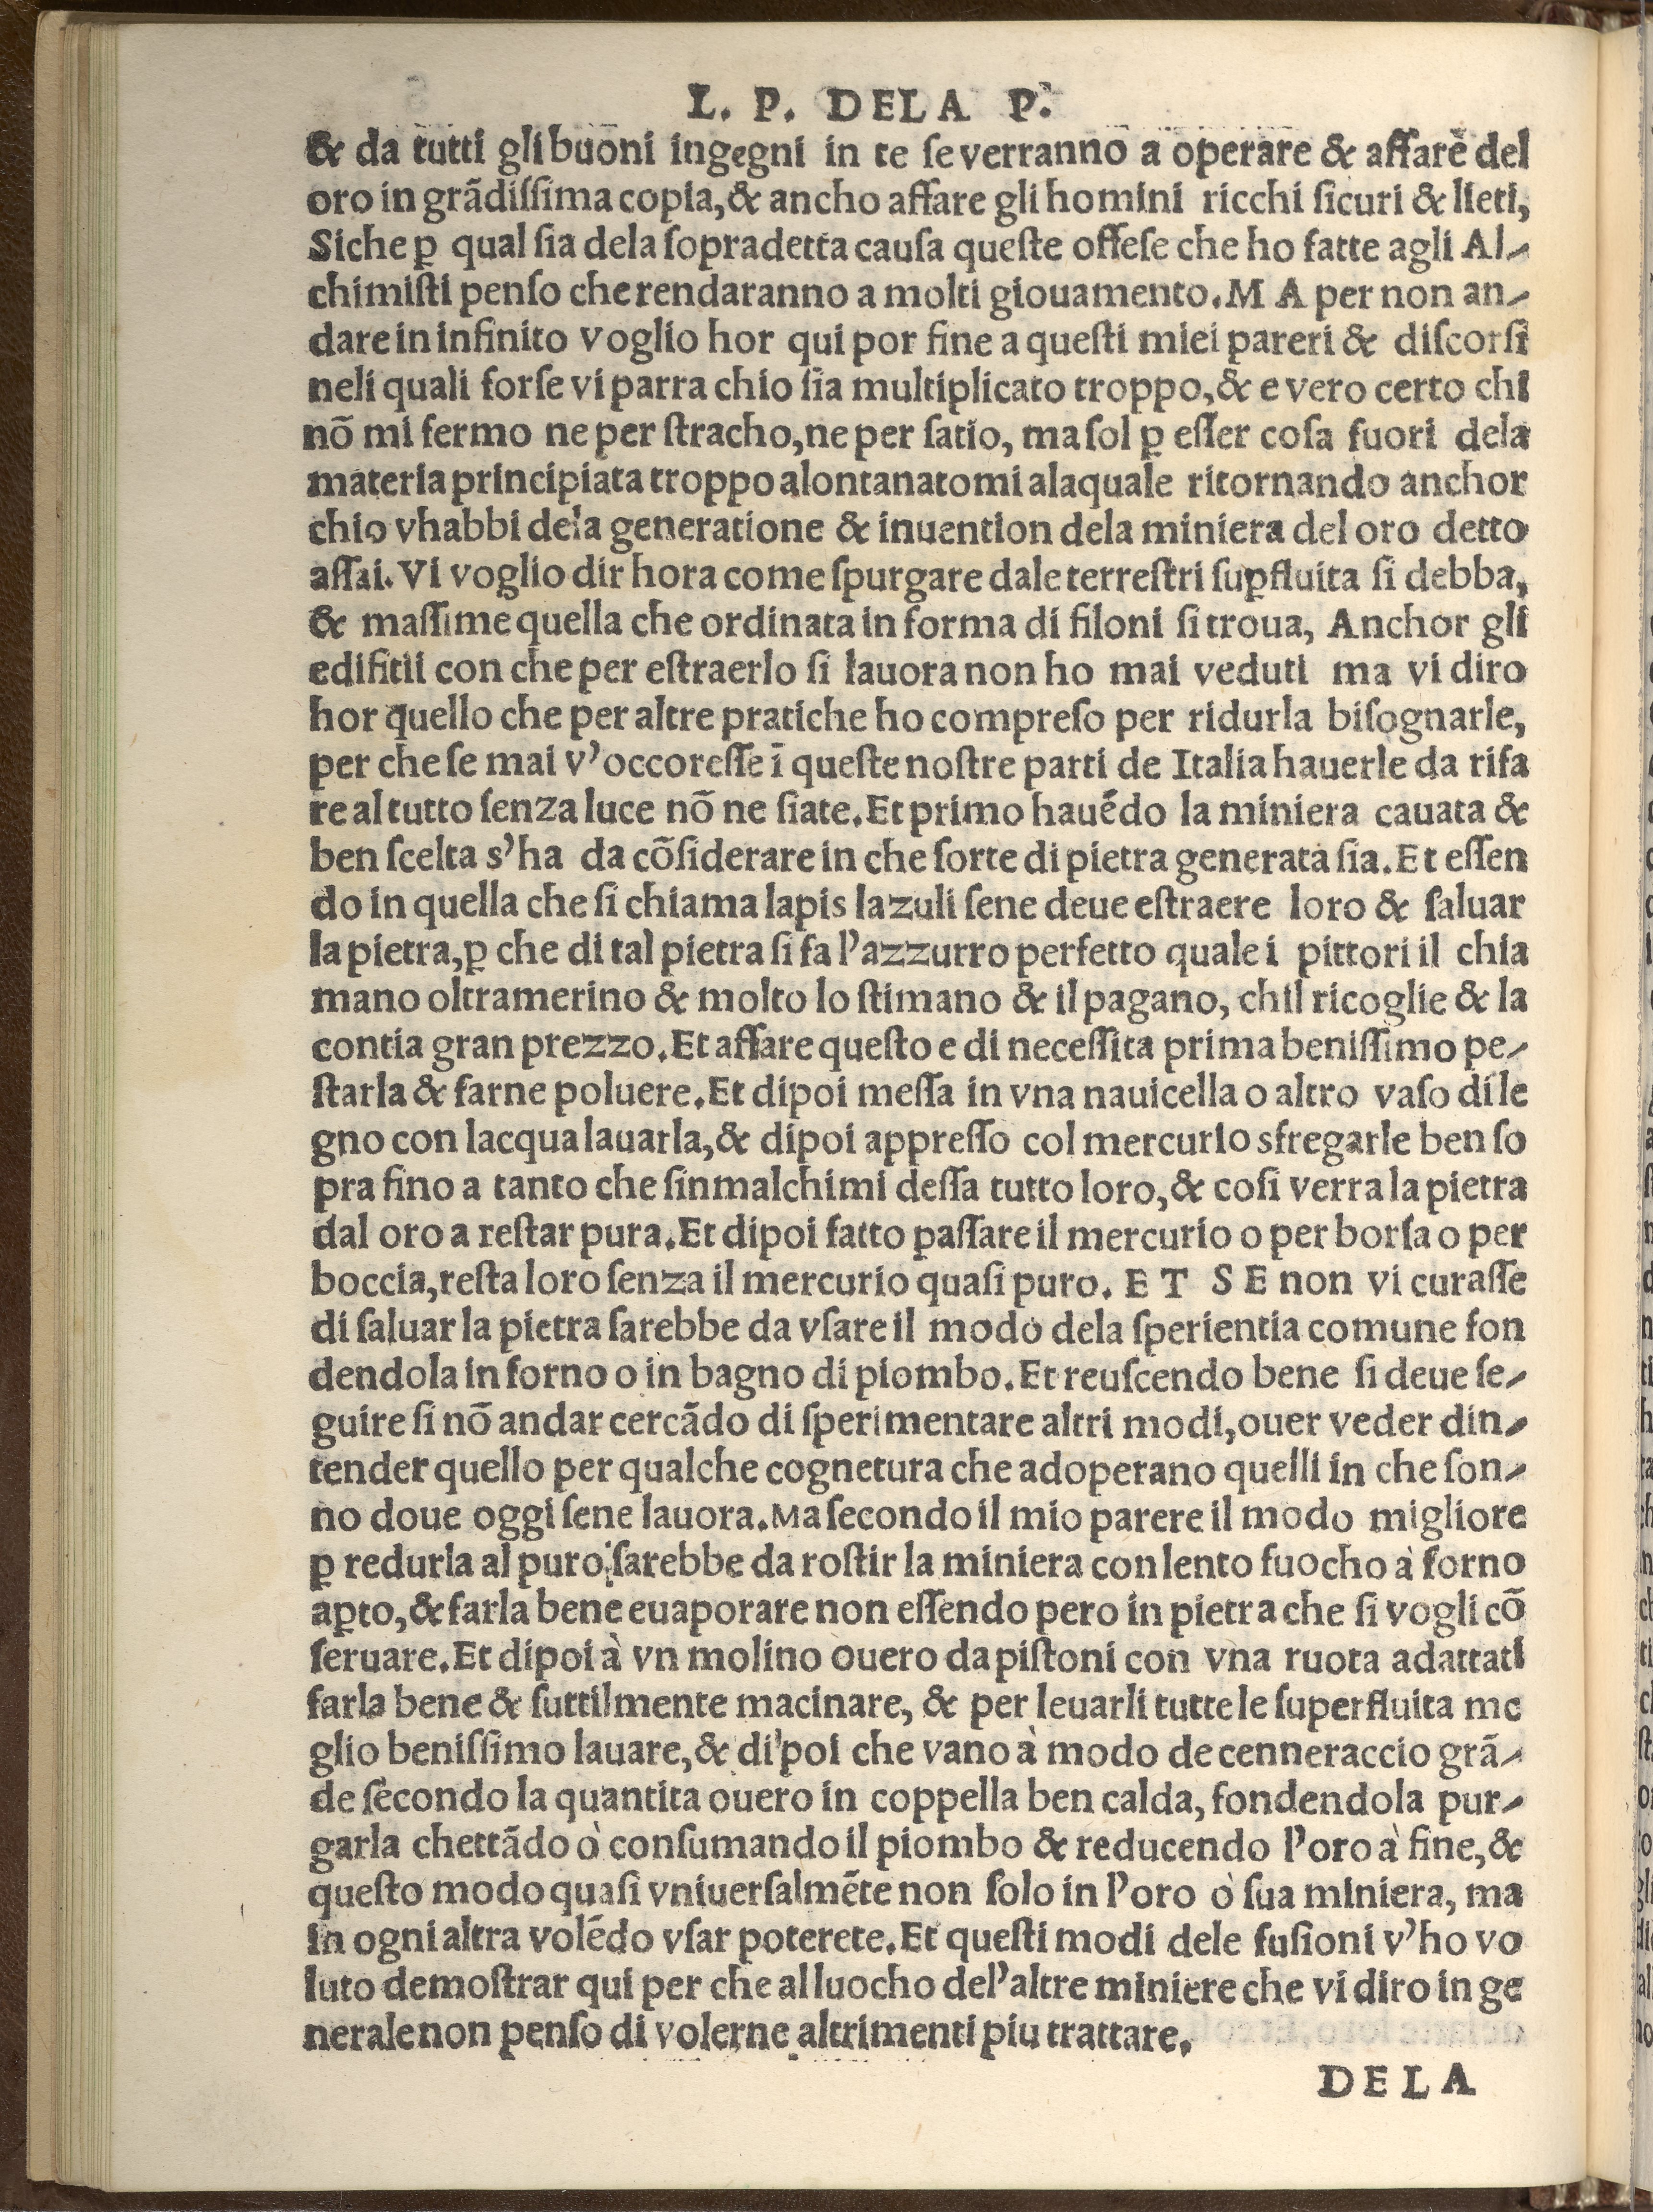 L. P. DELA P.
& da tutti gli buoni ingegni in te ſe verranno a operare & affare del
oro in grãdiſſima copia, & ancho affare gli homini ricchi ſicuri & lieti,
Siche ꝑ qual ſia dela ſopradetta cauſa queſte offeſe che ho fatte agli Al-
chimiſti penſo che rendaranno a molti giouamento. MA per non an-
dare in infinito voglio hor qui por fine a queſti miei pareri & diſcorſi
neli quali forſe vi parra chio ſia multiplicato troppo, & e vero certo chi
nõ mi fermo ne per ſtracho, ne per ſatio, ma ſol ꝑ eſſer coſa fuori dela
materia principiata troppo alontanatomi alaquale ritornando anchor
chio vhabbi dela generatione & inuention dela miniera del oro detto
aſſai. Vi voglio dir hora come ſpurgare dale terreſtri suꝑfluita ſi debba,
& maſſime quella che ordinata in forma di filoni ſi troua, Anchor gli
edifitii con che per eſtraerlo ſi lauora non ho mai veduti ma vi diro
hor quello che per altre pratiche ho compreſo per ridurla biſognarle,
per che ſe mai v'occoreſſe ĩ queſte noſtre parti de Italia hauerle da rifa
re al tutto ſenza luce nõ ne ſiate. Et primo hauẽdo la miniera cauata &
ben ſcelta s'ha da cõſiderare in che ſorte di pietra generata ſia. Et eſſen
do in quella che ſi chiama lapis lazuli ſene deue eſtraere loro & ſaluar
la pietra, ꝑ che di tal pietra ſi fa l'azzurro perfetto quale i pittori il chia
mano oltramerino & molto lo ſtimano & il pagano, chil ricoglie & la
contia gran prezzo. Et affare queſto e di neceſſita prima beniſſimo pe-
ſtarla & farne poluere. Et dipoi meſſa in vna nauicella o altro vaſo di le
gno con lacqua lauarla, & dipoi appreſſo col mercurio sfregarle ben ſo
pra fino a tanto che ſinmalchimi deſſa tutto loro, & coſi verra la pietra
dal oro a reſtar pura. Et dipoi fatto paſſare il mercurio o per borſa o per
boccia, reſta loro ſenza il mercurio quaſi puro. ET SE non vi curaſſe
di ſaluar la pietra ſarebbe da vſare il modo dela ſperientia comune fon
dendola in forno o in bagno di piombo. Et reuſcendo bene ſi deue ſe-
guire ſi nõ andar cercãdo di ſperimentare altri modi, ouer veder din-
tender quello per qualche cognetura che adoperano quelli in che ſon-
no doue oggi ſene lauora. Ma ſecondo il mio parere il modo migliore
ꝑ redurla al puro ſarebbe da roſtir la miniera con lento fuocho à forno
aꝑto, & farla bene euaporare non eſſendo pero in pietra che ſi vogli cõ
ſeruare. Et dipoi à vn molino ouero da piſtoni con vna ruota adattati
farla bene & ſuttilmente macinare, & per leuarli tutte le ſuperfluita me
glio beniſſimo lauare, & di'poi che vano à modo de cenneraccio grã-
de ſecondo la quantita ouero in coppella ben calda, fondendola pur-
garla chettãdo ò conſumando il piombo & reducendo l'oro à fine, &
queſto modo quaſi vniuerſalmẽte non ſolo in l'oro ò ſua miniera, ma
in ogni altra volẽdo vſar poterete. Et queſti modi dele fuſioni v'ho vo
luto demoſtrar qui per che al luocho del'altre miniere che vi diro in ge
nerale non penſo di volerne altrimenti piu trattare.
DELA